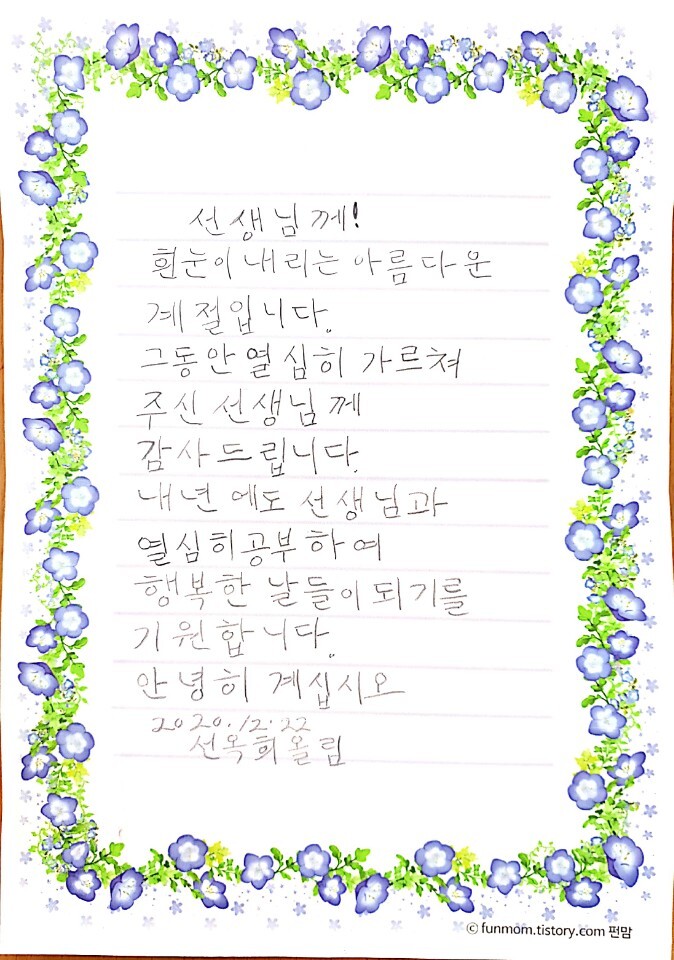 선생님께!
흰눈이 내리는 아름다운
계절입니다.
그동안 열심히 가르쳐
주신 선생님께
감사드립니다.
내년에도 선생님과
열심히공부하여
행복한 날들이 되기를
기원합니다.
안녕히 계십시오
2020.12.22
선옥희올림
© funmom.tistory.com 펀맘